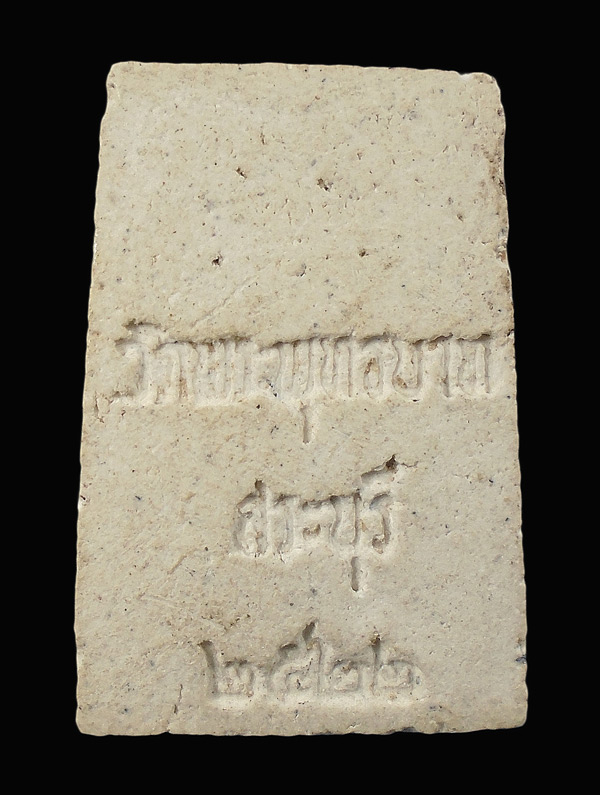 วัดพระพุทธบาท
สระบุรี
๒๕๒๒